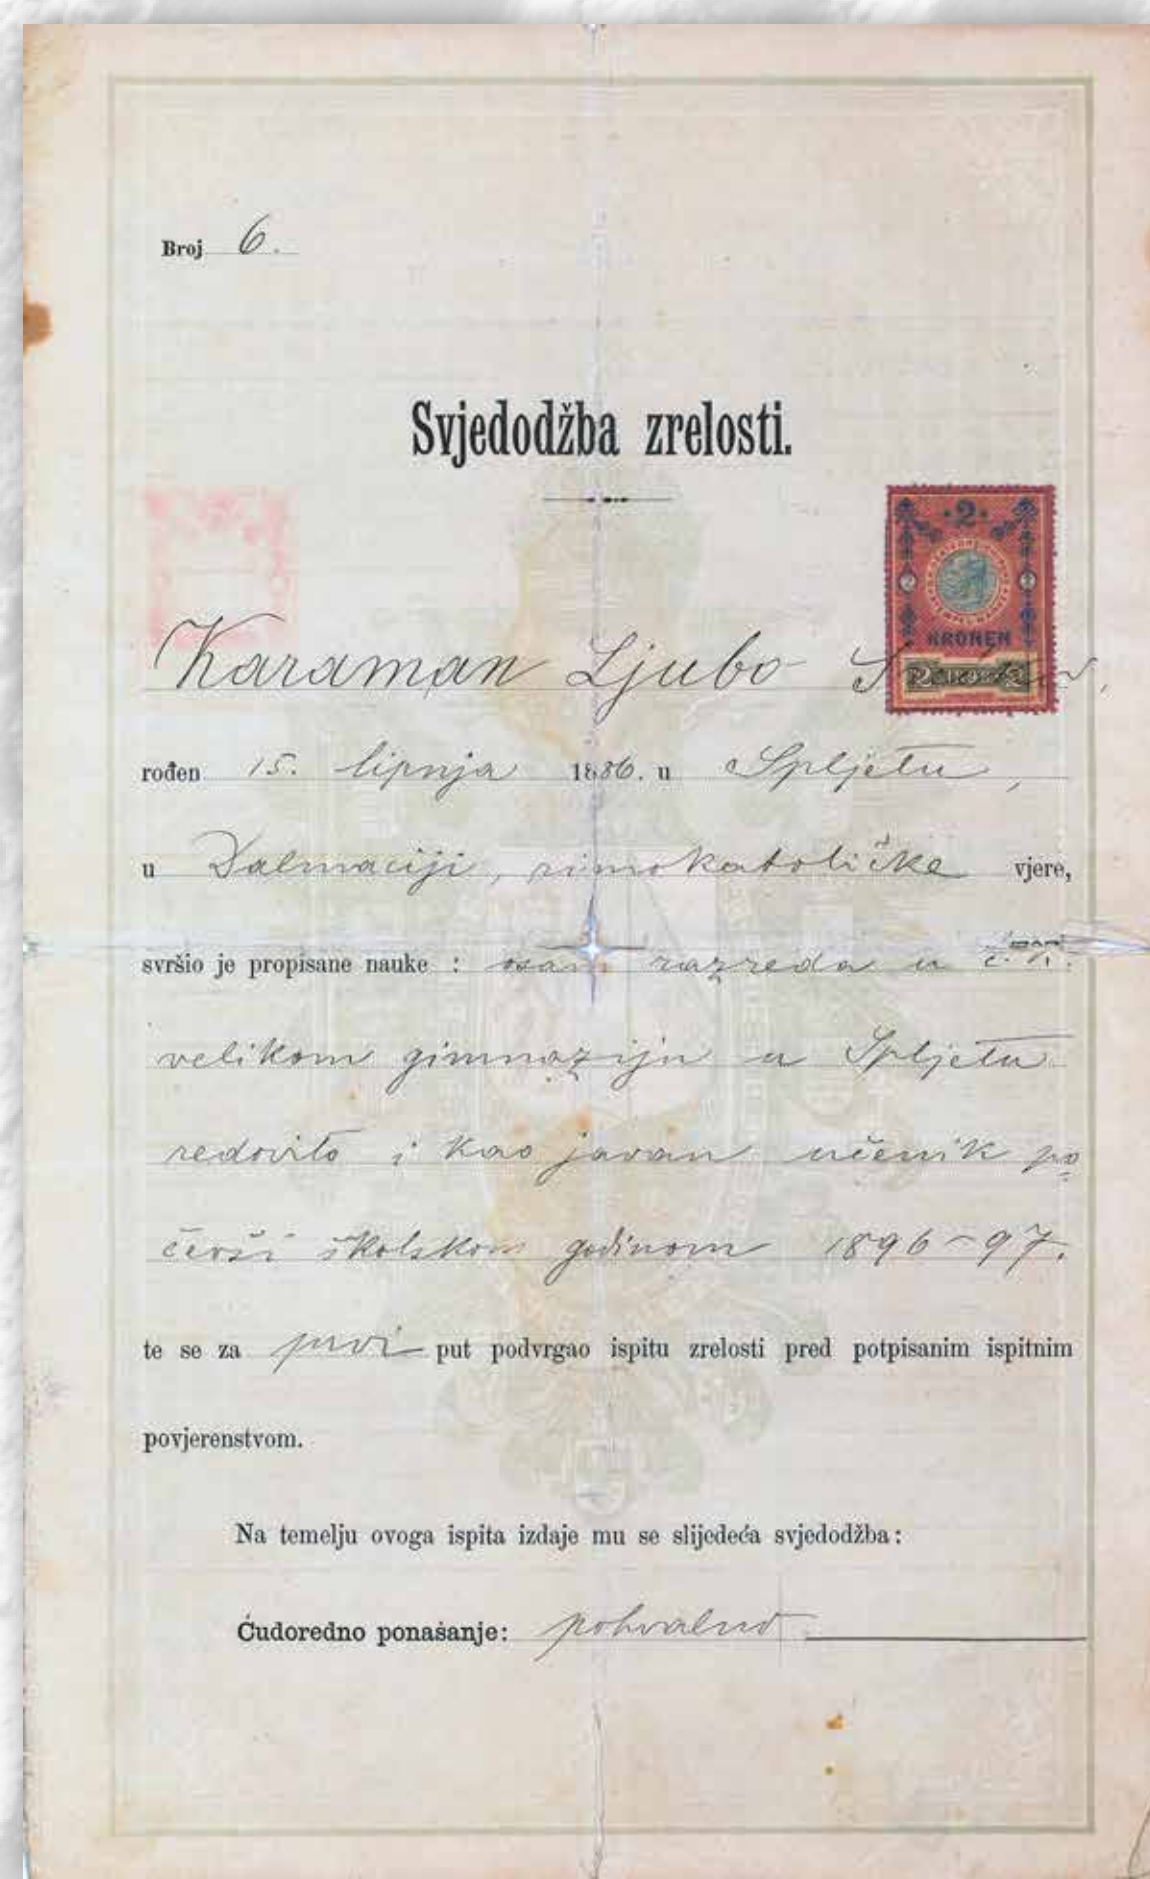 Broj 6.
Svjedodžba zrelosti.
2
2 2
KRONEN
Karaman Ljubo
rođen 15. lipnja 1886. u Spljetu,
u Dalmaciji, rimokatoličke vjere,
svršio je propisane nauke : osam razreda u c. k.
velikom gimnaziju u Spljetu
redovito i kao javan učenik po
čevši školskom godinom 1896-97.
te se za prvi put podvrgao ispitu zrelosti pred potpisanim ispitnim
povjerenstvom.
Na temelju ovoga ispita izdaje mu se slijedeća svjedodžba:
Ćudoredno ponašanje: pohvalno